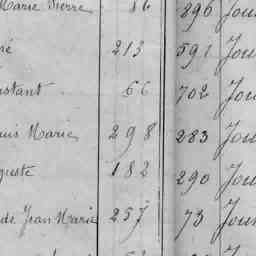 Marie Pierre 86 896 Jou
é 213 591 Jou
stant 66 702 Jou
uis Marie 298 283 Jou
guste 182 290 Jou
de Jean Marie 257 73 Jou